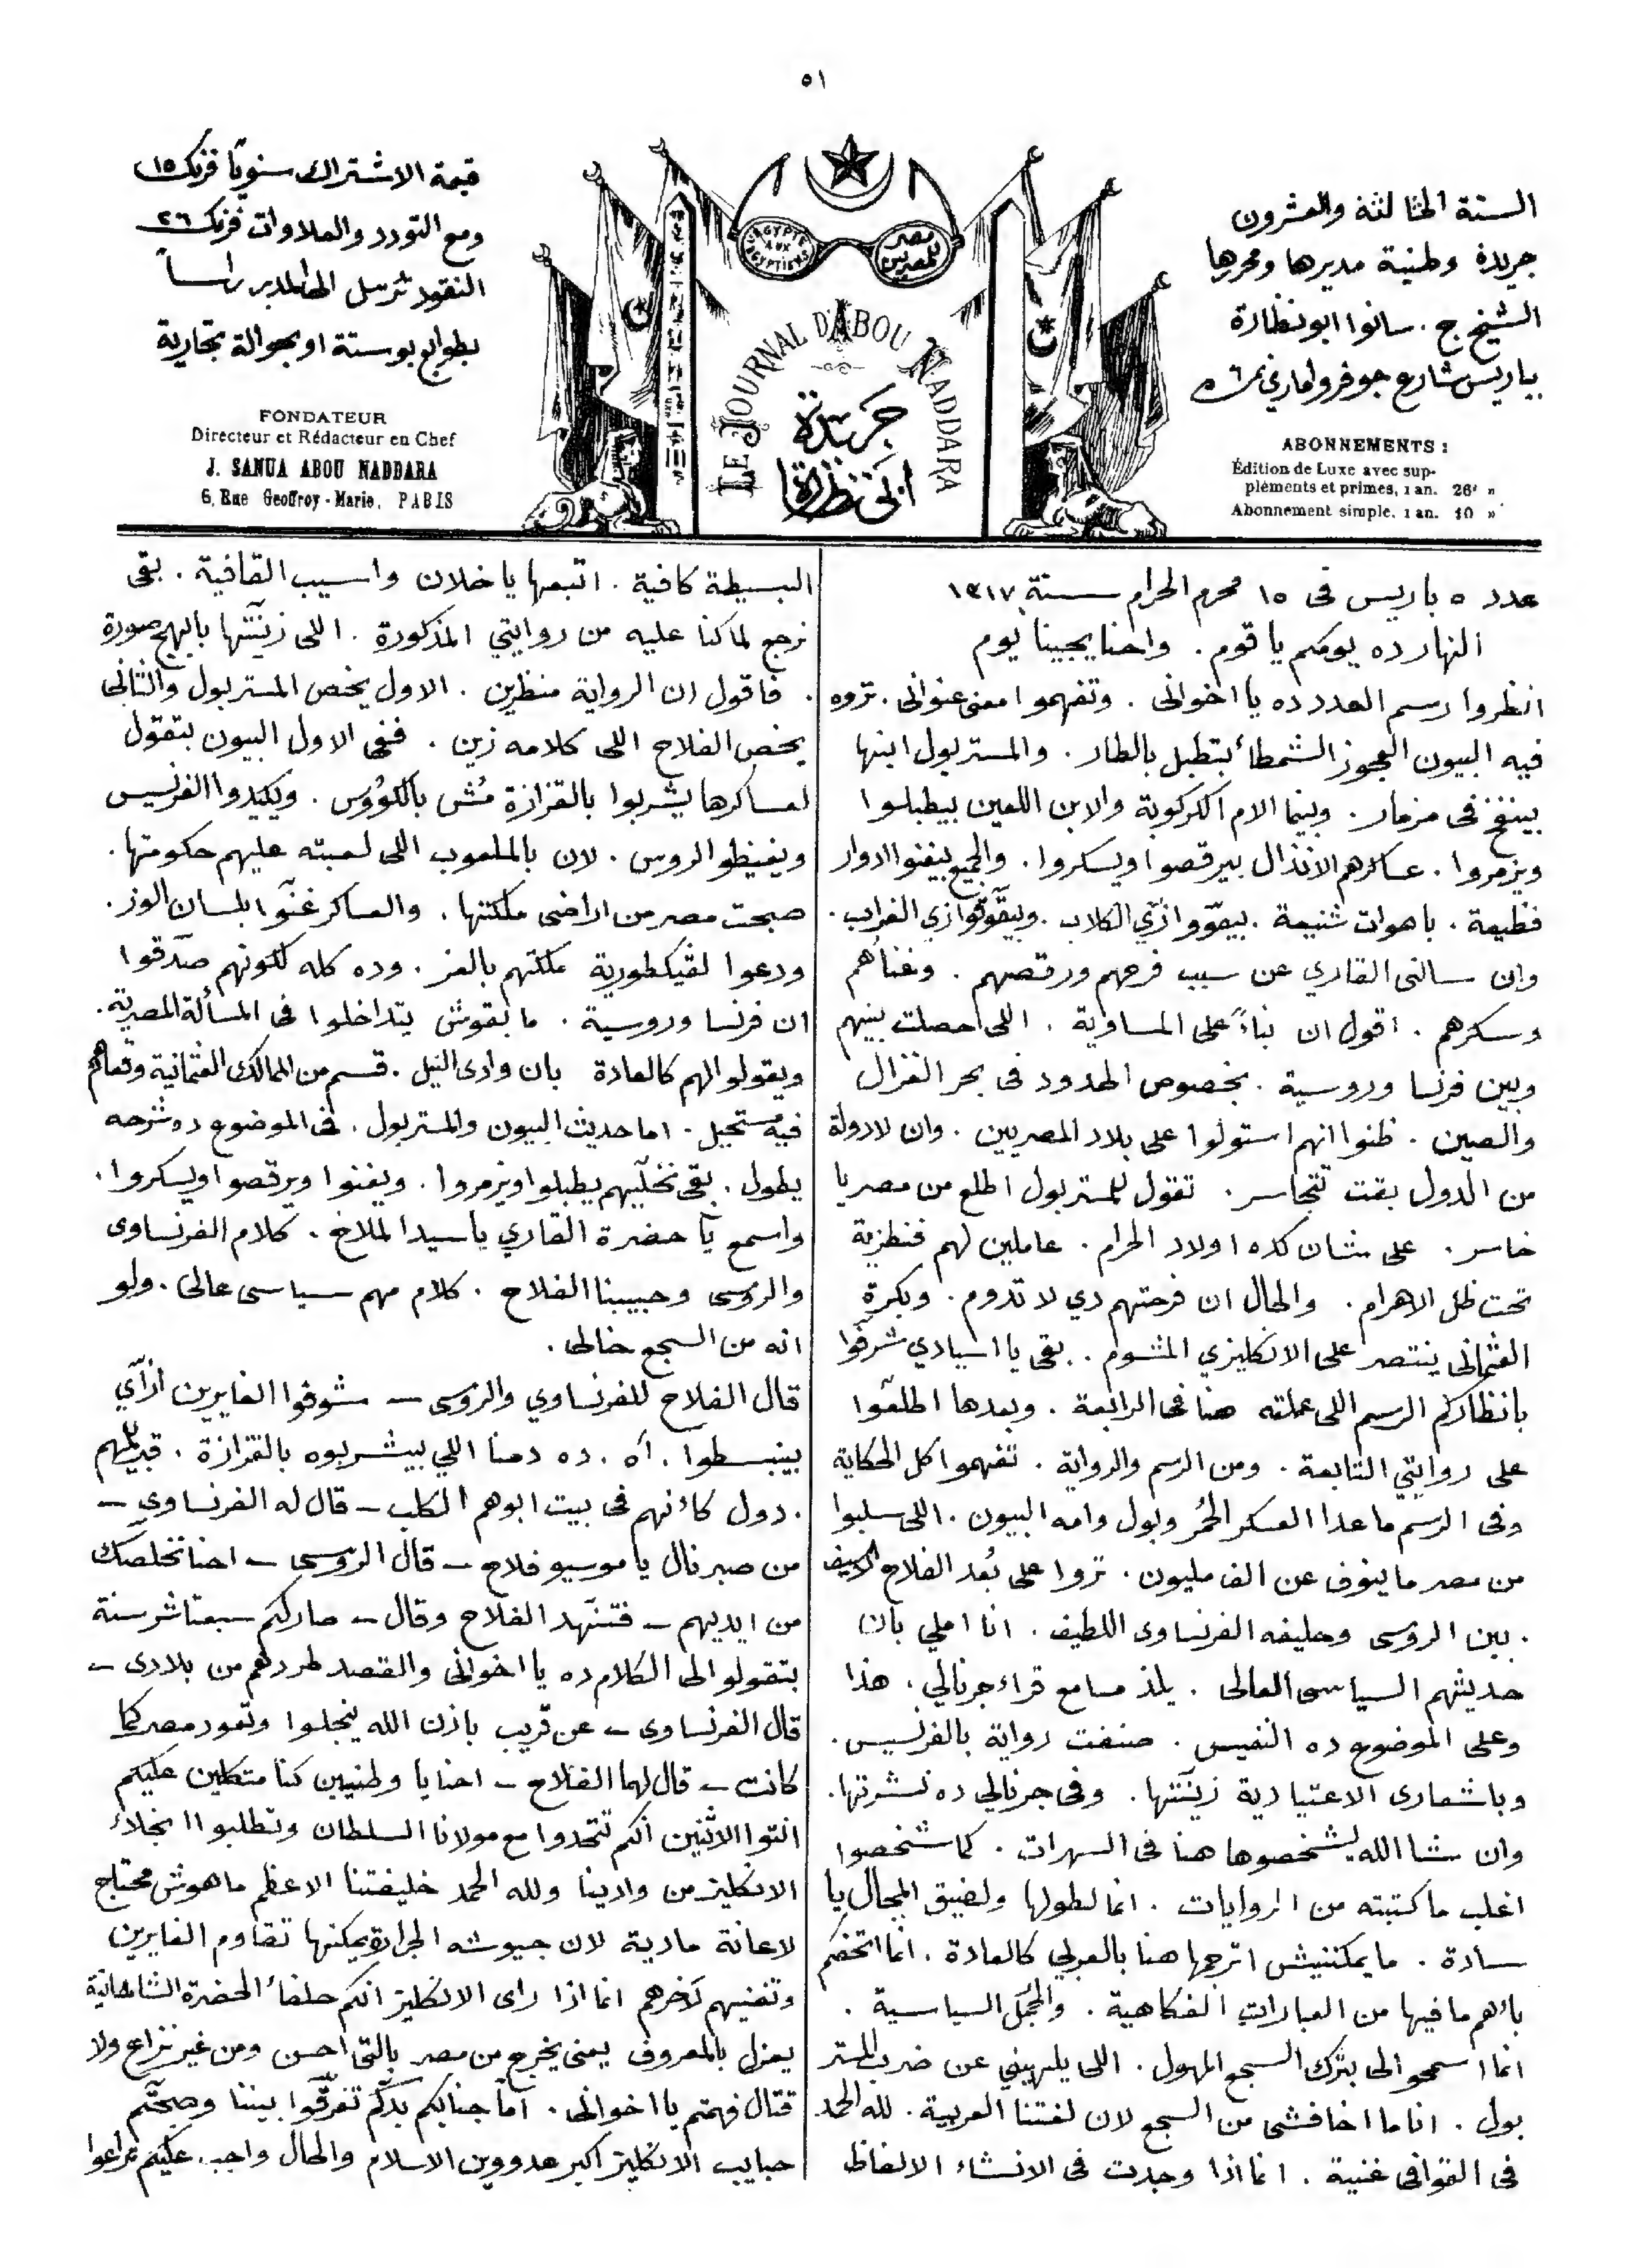 ٥١
السنة الثالثة والعشرون
جريدة وطنية مديرها ومحررها
الشيخ ج. سانوا ابو نظارة
بباريس شارع جوفروا ماري نمرة ٦
قيمة الاشتراك سنويًا فرنك ١٥
ومع التورد والعلاوات فرنك ٢٦
النقود ترسل الى المدير راسًا
بطوابع بوستة او بحوالة تجارية
FONDATEUR
Directeur et Rédacteur en Chef
J. SANUA ABOU NADDARA
6, Rue Geoffroy-Marie, PARIS
L'EGYPTE AUX EGYPTIENS
مصر للمصريين
LE JOURNAL D'ABOU NADDARA
جريدة
ابي نظارة
ABONNEMENTS :
Édition de Luxe avec sup-
pléments et primes, 1 an. 26f »
Abonnement simple, 1 an. 10 »
عدد ٥ باريس فى ١٥ محرم الحرام سنة ١٣١٧
النهارده يومكم يا قوم . واحنا يجيبنا يوم
انظروا رسم العدد ده يا اخوانى . وتفهموا معنى عنوانى . تروه
فيه البيون العجوز الشمطاء بتطبل بالطار . والمستر بول ابنها
بينفخ فى مزمار . وبينما الام الكركوبة والابن اللعين بيطبلوا
ويزمروا . عساكرهم الانذال بيرقصوا ويسكروا . والجميع بيغنوا ادوار
فظيعة . باهوات شنيعة . بيعوّوا ازّي الكلاب . وبيقوقوا زي الغراب .
وان سالنى القاري عن سبب فرحهم ورقصهم . وغناهم
وسكرهم . اقول ان بناءً على المساوية . اللى احصلت بينهم
وبين فرنسا وروسية . بخصوص الحدود فى بحر الغزال
والصين . ظنوا انهم استولوا على بلاد المصريين . وان لا دولة
من الدول بقت تتجاسر . تقول للمستر بول اطلع من مصر يا
خاسر . على شان كده اولاد الحرام . عاملين لهم فنطزية
تحت ظل الاهرام . والحال ان فرحتهم دي لا تدوم . وبكرة
العثمانى ينتصر على الانكليزي المشوم . بقى يا اسيادي شرفوا
بانظاركم الرسم اللى عملته هنا فى الرابعة . وبعدها اطلعوا
على روايتي التابعة . ومن الرسم والرواية . تفهموا كل الحكاية
وفى الرسم ما عدا العسكر الحُمر وبول وامه البيون . اللى سلبوا
من مصر ما ينوف عن الف مليون . تروا على بُعد الفلاح
. بين الروسى وحليفه الفرنساوى اللطيف . انا املي بان
حديثهم السياسى العالى . يلذ مسامع قراء جرنالي . هذا
وعلى الموضوع ده النفيس . صنفت رواية بالفرنسيس .
وباشعارى الاعتيادية زينّتها . وفى جرنالي ده نشرتها .
وان شا الله يشخصوها هنا فى السهرات . كما شخصوا
اغلب ما كتبته من الروايات . انما لطولها ولضيق المجال يا
سادة . ما يمكننيش اترجمها هنا بالعربي كالعادة . انما اتحفكم
باهم ما فيها من العبارات الفكاهية . والجُمل السياسية .
انما اسمحوا لى بترك السجع المهول . اللى يلهيني عن ضرب المستر
بول . انا ما اخافشى من السجع لان لغتنا العربية . لله الحمد
فى القوافى غنية . انما اذا وجدت فى الانشاء الالفاظ
البسيطة كافية . اتبعها يا خلان واسيب القافية . بقى
نرجع لما كنا عليه من روايتي المذكورة . اللى زينّتها بابهج صورة
. فاقول ان الرواية منظرين . الاول يخص المستر بول والثانى
يخص الفلاح اللى كلامه زين . ففى الاول البيون بتقول
لعساكرها يشربوا بالقزازة مُش بالكؤوس . ويكيدوا الفرنسيس
ويغيظوا الروس . لان بالملعوب اللى لعبته عليهم حكومتها .
صبحت مصر من اراضى مملكتها . والعساكر غنّوا بلسان الوز .
ودعوا لفيكطورية ملكتهم بالعز . وده كله لكونهم صدّقوا
ان فرنسا وروسية . ما بقوش يتداخلوا فى المسألة المصرية .
ويقولوا لهم كالعادة بان وادى النيل . قسم من الممالك العثمانية وبقاهم
فيه مستحيل . اما حديث البيون والمستر بول . فى الموضوع ده شرحه
يطول . بقى نخلّيهم يطبلوا ويزمروا . ويغنوا ويرقصوا ويسكروا .
واسمع يا حضرة القاري يا سيد الملاح . كلام الفرنساوى
والروسى وحبيبنا الفلاح . كلام مهم سياسى عالى . ولو
انه من السجع خالى .
قال الفلاح للفرنساوي والروسى ــ شوفوا الغايرين ازّاي
بينبسطوا . اه . ده دمنا اللي بيشربوه بالقزازة .
. دول كانهم فى بيت ابوهم الكلب ــ قال له الفرنساوي ــ
من صبر نال يا موسيو فلاح ــ قال الروسى ــ احنا نخلصك
من ايديهم ــ فتنهّد الفلاح وقال ــ صار لكم سبعتاشر سنة
بتقولوا لى الكلام ده يا اخوانى والقصد طردهم من بلادى ــ
قال الفرنساوى ــ عن قريب باذن الله ينجلوا وتعود مصر كما
كانت ــ قال لهما الفلاح ــ احنا يا وطنيين كنا متكلين عليكم
انتوا الاثنين انكم تتحدوا مع مولانا السلطان وتطلبوا انجلاء
الانكليز من وادينا ولله الحمد خليفتنا الاعظم ماهوش محتاج
لاعانة مادية لان جيوشه الجرارة يمكنها تقاوم الغايرين
وتفنيهم لآخرهم انما اذا راى الانكليز انكم حلفاء الحضرة الشاهانية
يعزل بالمعروف يعنى يخرج من مصر بالتى احسن ومن غير نزاع ولا
قتال فهمتم يا اخوانى . اما جنابكم بدّكم تفرّقوا بيننا وصبحتم
حبايب الانكليز اكبر عدووين الاسلام والحال واجب عليكم تراعوا